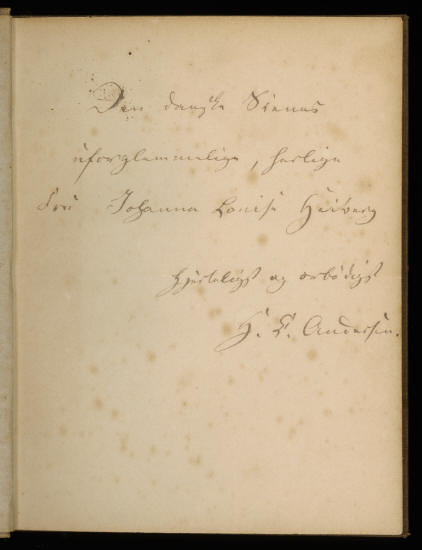 Den danske Scenes
uforglemmelige, herlige
Fru Johanna Louise Heiberg
hjerteligst og ærbødigst
H. C. Andersen.